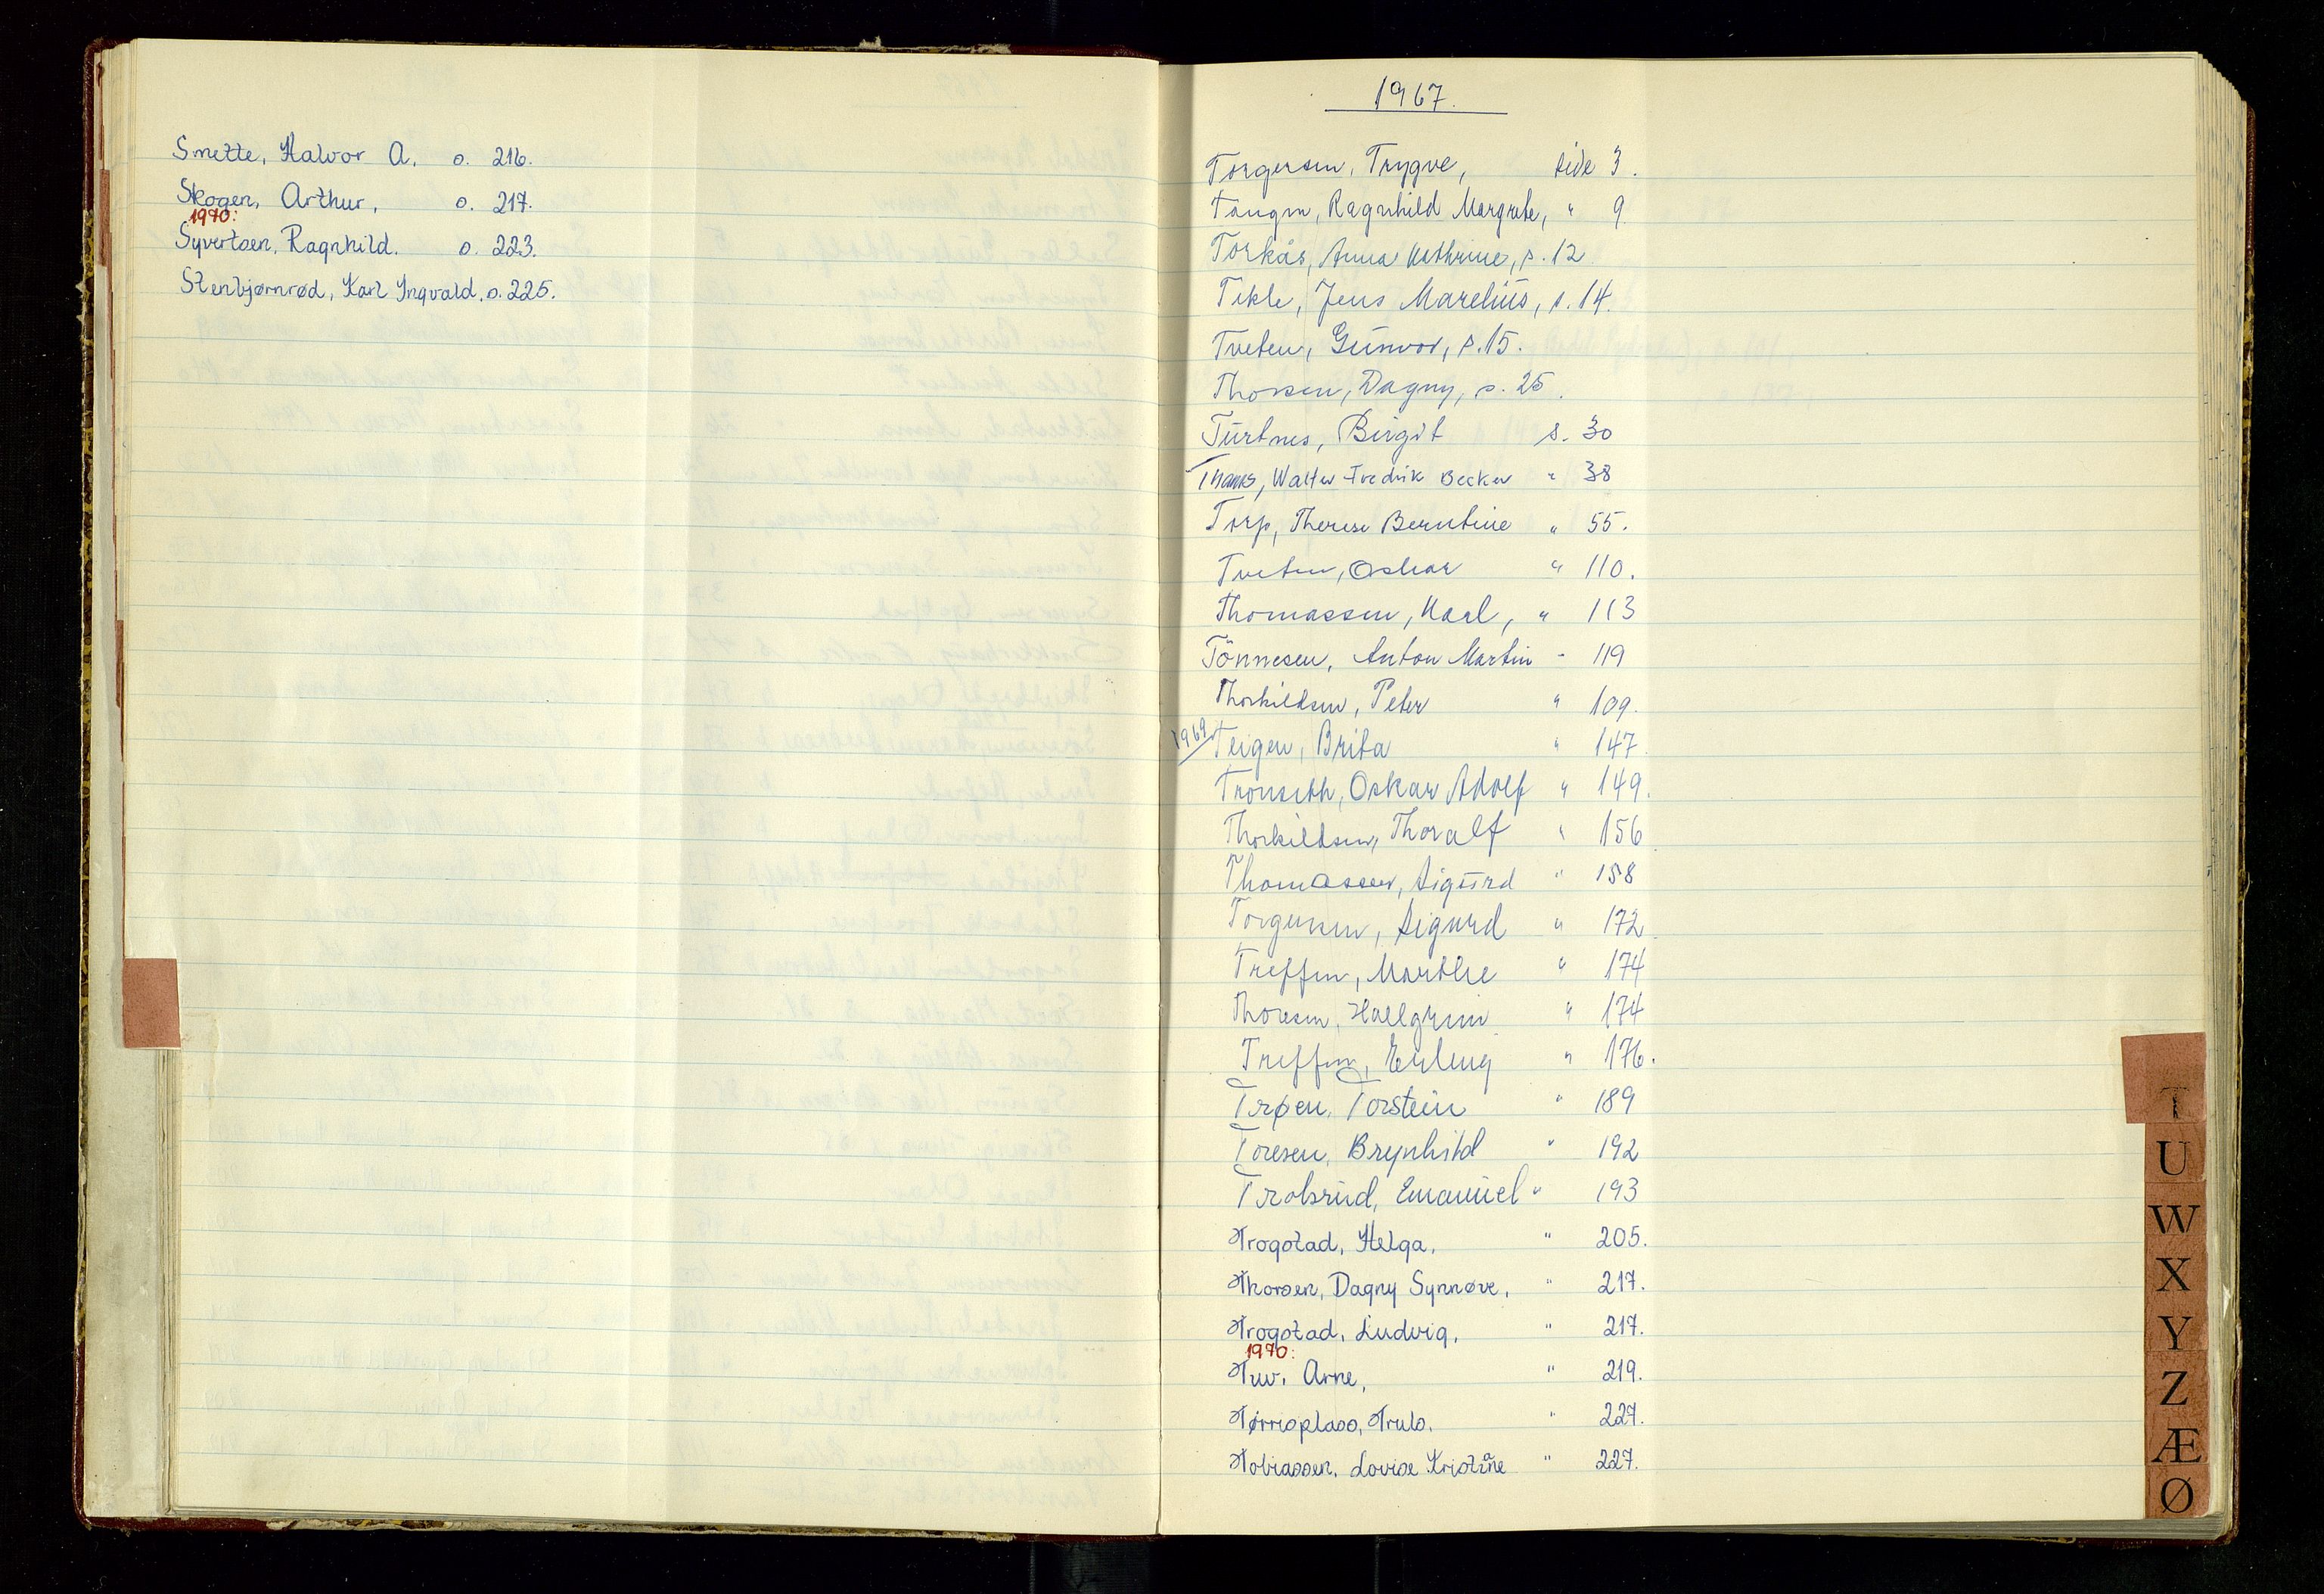 Smette, Halvor A. s. 216.
Skogen, Arthur, s. 217.
1970:
Syvertsen, Ragnhild. s. 223.
Stenbjørnrød, Karl Ingvald. s. 225.
1967.
Torgersen, Trygve, side 3.
Tangen, Ragnhild Margrete, " 9
Torkås, Anna Kathrine, s. 12
Tekle, Jens Marelius, s. 14.
Tveten, Gunvor, s. 15.
Thorsen, Dagny, s. 25.
Turtnes, Birgit s. 30
Thams, Walter Fredrik Becker " 38
Torp, Therese Berntine " 55.
Tveten, Oskar " 110.
Thomassen, Karl, " 113
Tönnesen, Anton Martin - 119
Thorkildsen, Peter " 109.
1969
Teigen, Brita " 147.
Tronseth, Oskar Adolf " 149.
Thorkildsen, Thoralf " 156
Thomassen, Sigurd " 158
Torgersen, Sigurd " 172.
Treffen, Marthe " 174
Thoresen, Hallgrim " 174
Treffen, Erling " 176.
Trøen, Torstein " 189
Toresen, Brynhild " 192
Trolsrud, Emanuel " 193
Trogstad, Helga, " 205.
Thorsen, Dagny Synnøve, " 217.
Trogstad, Ludvig, " 217.
1970:
Tuv, Arne, " 219.
Tørrisplass, Truls. " 227.
Tobiassen, Lovise Kristine " 227.
T
U
W
X
Y
Z
Æ
Ø